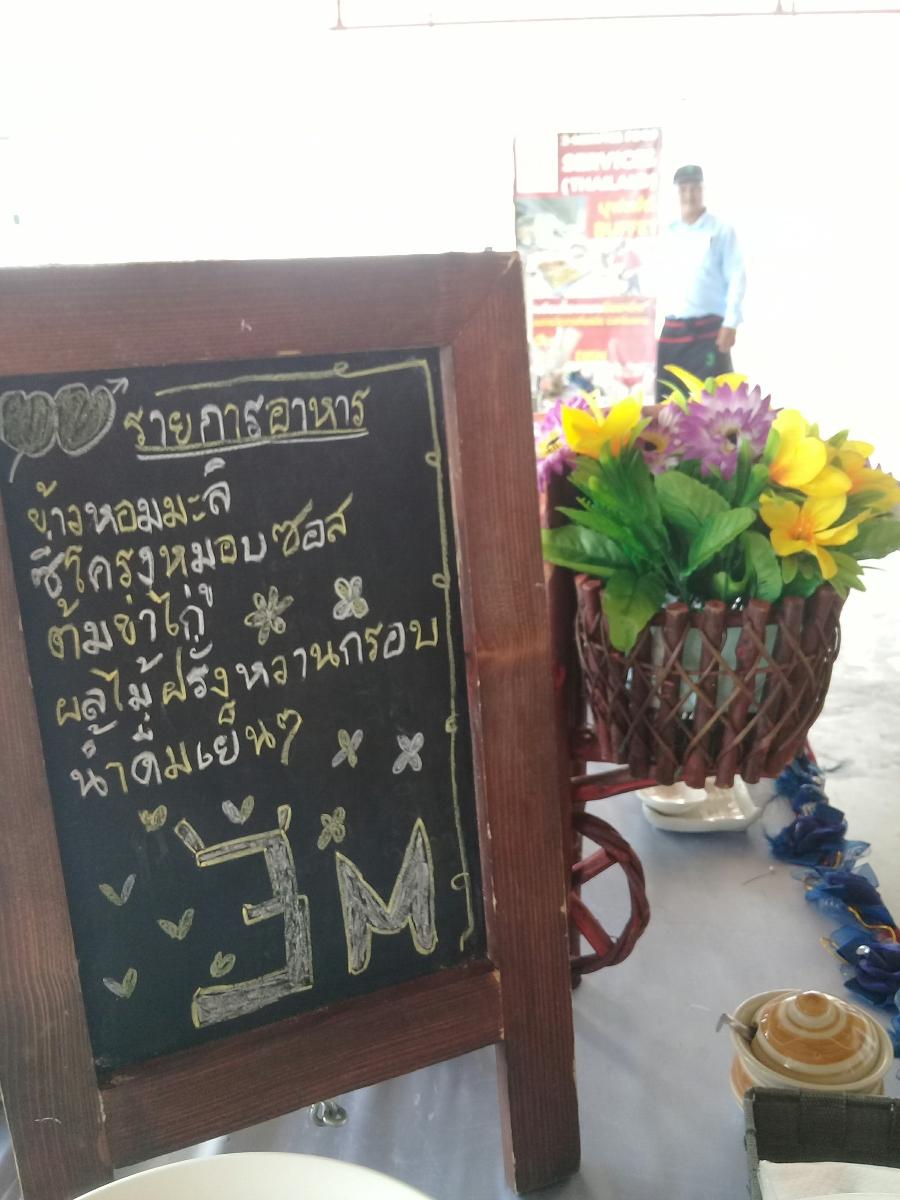 รายการอาหาร
ข้าวหอมมะลิ
ซี่โครงหมูอบซอส
ต้มข่าไก่
ผลไม้ ฝรั่งหวานกรอบ
น้ำดื่มเย็นๆ
3M
SERVICES
(THAILAND)
BUFFET